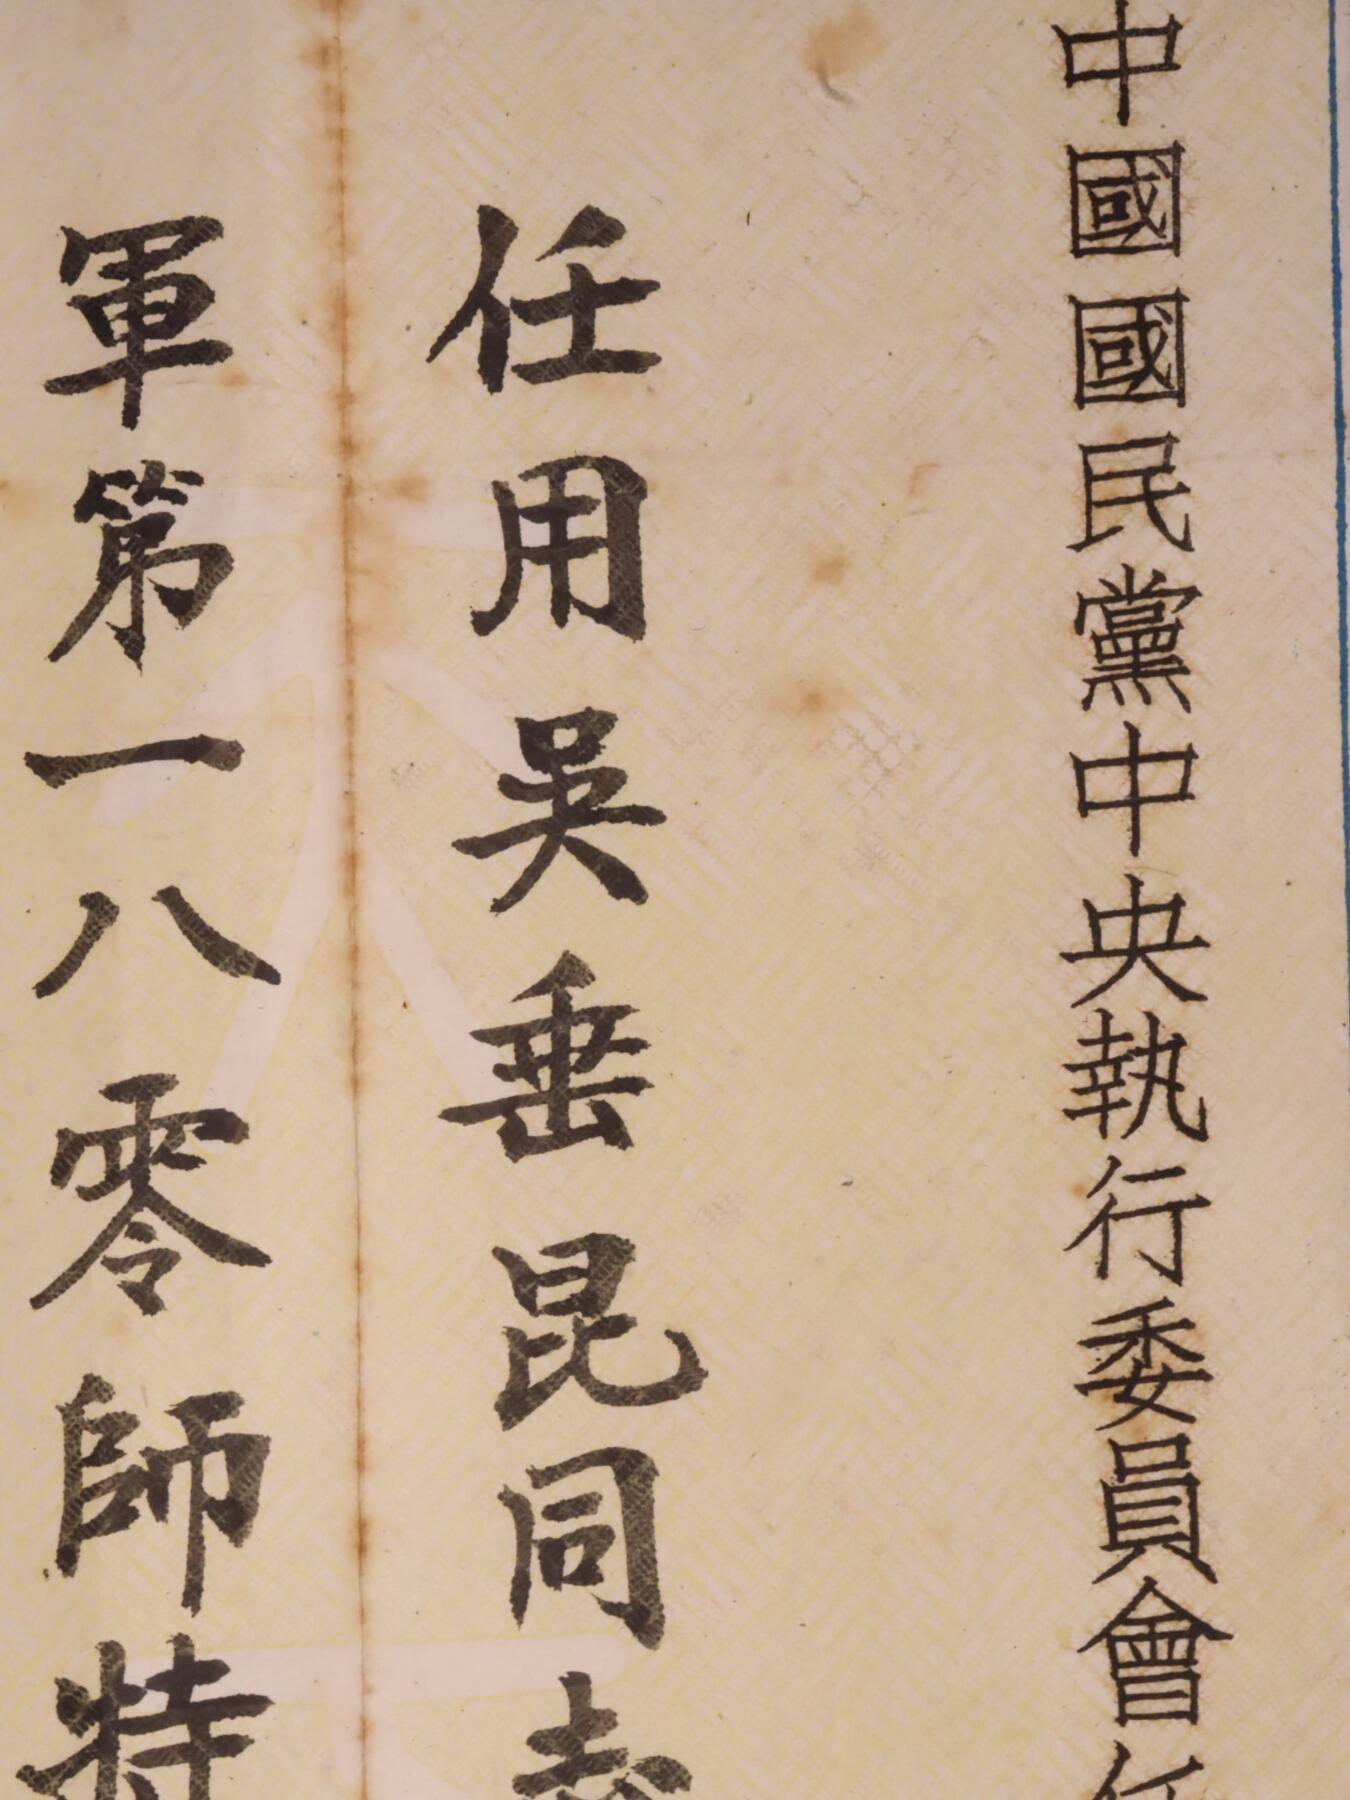 中國國民黨中央執行委員會任
任用吳垂昆同志
軍第一八零師特